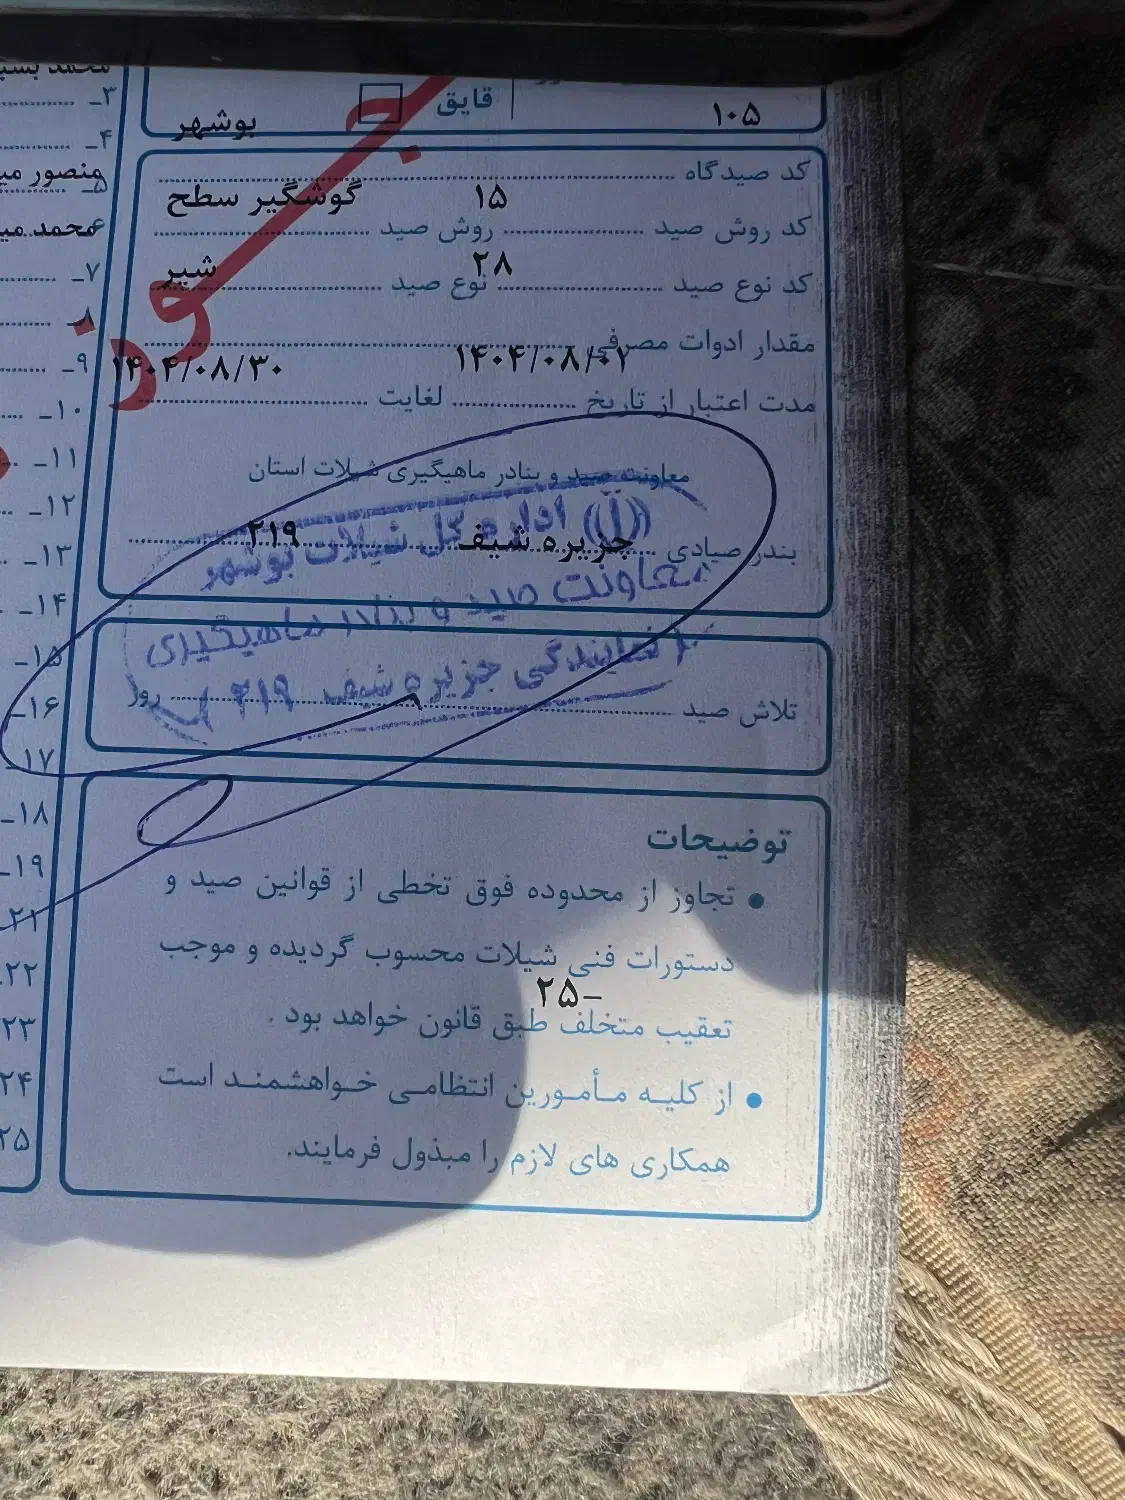 قایق
۱۰۵
بوشهر
کد صیدگاه
۱۵
گوشگیر سطح
کد روش صید
روش صید
۲۸
شیر
کد نوع صید
نوع صید
مقدار ادوات مصرفی
۱۴۰۴/۰۸/۰۱
۱۴۰۴/۰۸/۳۰
مدت اعتبار از تاریخ
لغایت
معاونت صید و بنادر ماهیگیری شیلات استان
بندر صیادی
جزیره شیف
۲۱۹
اداره کل شیلات بوشهر
معاونت صید و بنادر ماهیگیری
نمایندگی جزیره شیف ۲۱۹
تلاش صید
روز
توضیحات
• تجاوز از محدوده فوق تخطی از قوانین صید و
دستورات فنی شیلات محسوب گردیده و موجب
۲۵-
تعقیب متخلف طبق قانون خواهد بود .
• از کلیه مأمورین انتظامی خواهشمند است
همکاری های لازم را مبذول فرمایند.
مجوز
۳-
۴-
منصور
۵-
۶-
محمد
۷-
۸-
۹-
۱۰-
۱۱-
۱۲-
۱۳-
۱۴-
۱۵-
۱۶-
۱۷-
۱۸-
۱۹-
۲۱-
۲۲
۲۳
۲۴
۲۵